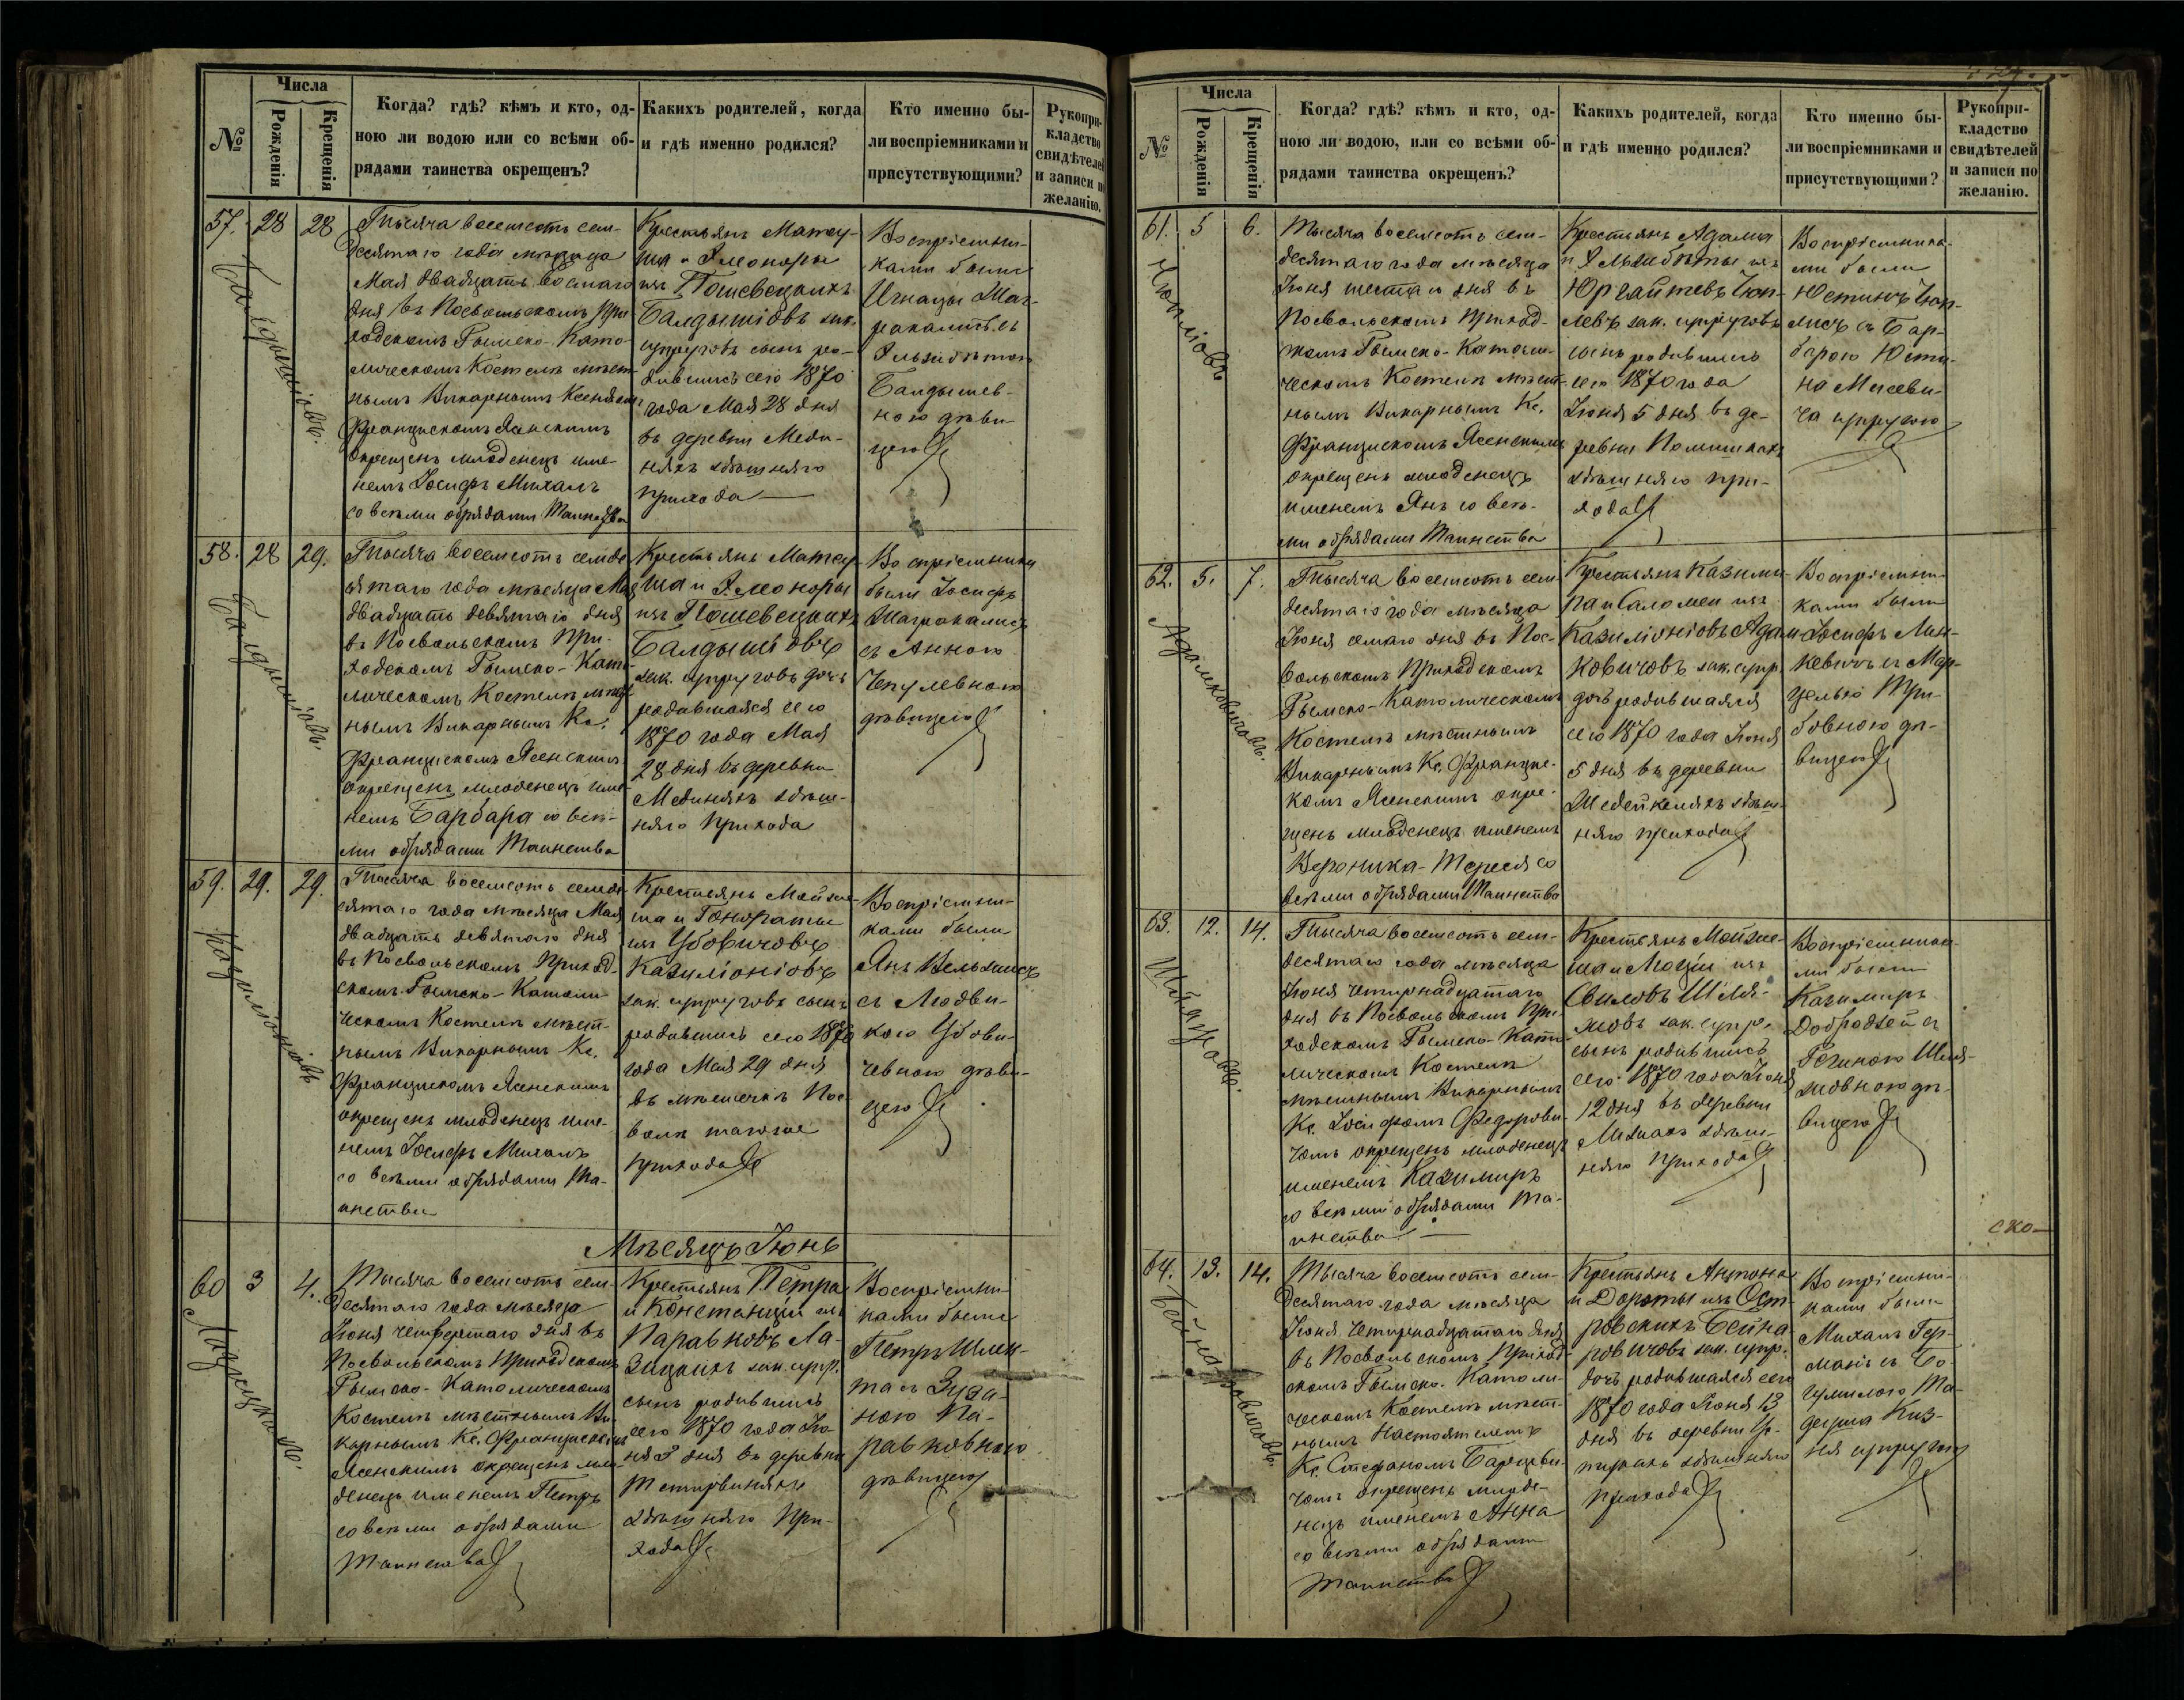 Числа
№
Рожденія
Крещенія
Когда? гдѣ? кѣмъ и кто, од-
ною ли водою или со всѣми об-
рядами таинства окрещенъ?
Какихъ родителей, когда
и гдѣ именно родился?
Кто именно бы-
ли воспріемниками и
присутствующими?
Рукопри-
кладство
свидѣтелей
и записи по
желанію.
57.
28
28
Балдышіовъ.
Тысяча восемсотъ сем-
десятаго года мѣсяца
Мая двадцать восмаго
дня въ Посвольскомъ При
ходскомъ Римско-Като-
лическомъ Костелѣ мѣст-
нымъ Викарнымъ Ксендзомъ
Францискомъ Ясенскимъ
окрещенъ младенецъ име-
немъ Іосифъ Михалъ
со всѣми обрядами Таинства
Крестьянъ Матеу-
ша и Элеоноры
изъ Пошевецкихъ
Балдышіовъ зак.
супруговъ сынъ ро-
дившись сего 1870
года Мая 28 дня
въ деревни Меди-
няхъ здѣшняго
прихода
Воспріемни-
ками были
Игнацы Маг-
ракалисъ съ
Эльзбѣтою
Балдышев-
ною дѣви
цею
58.
28
29.
Балдышіовъ.
Тысяча восемсотъ семде
сятаго года мѣсяца Мая
двадцать девятаго дня
въ Посвольскомъ При-
ходскомъ Римско-Като-
лическомъ Костелѣ мѣст
нымъ Викарнымъ Кс.
Францискомъ Ясенскимъ
окрещенъ младенецъ име
немъ Барбара со всѣ-
ми обрядами Таинства
Крестьянъ Матеу-
ша и Элеоноры
изъ Пошевецкихъ
Балдышіовъ
зак. супруговъ дочь
родившаяся сего
1870 года Мая
28 дня въ деревни
Мединяхъ здѣш-
няго прихода
Воспріемники
были Іосифъ
Магракалисъ
съ Анною
Чепулевною
дѣвицею
59.
29.
29.
Казимліоніовъ
Тысяча восемсотъ семде
сятаго года мѣсяца Мая
двадцать девятаго дня
въ Посвольскомъ Приход-
скомъ Римско-Католи-
ческомъ Костелѣ мѣст-
нымъ Викарнымъ Кс.
Францискомъ Ясенскимъ
окрещенъ младенецъ име-
немъ Іосифъ Михалъ
со всѣми обрядами Та-
инства
Крестьянъ Мойже-
ша и Гонораты
изъ Убовичовъ
Казиліоніовъ
зак. супруговъ сынъ
родившись сего 1870
года Мая 29 дня
въ мѣстечкѣ Пос-
волѣ тагоже
прихода
Воспріемни-
ками были
Янъ Вельжисъ
съ Людви-
кою Убови-
чевною дѣви-
цею
Мѣсяцъ Іюнь
60
3
4.
Лазицкихъ.
Тысяча восемсотъ сем-
десятаго года мѣсяца
Іюня четвертаго дня въ
Посвольскомъ Приходскомъ
Римско-Католическомъ
Костелѣ мѣстнымъ Ви-
карнымъ Кс. Францискомъ
Ясенскимъ окрещенъ мла-
денецъ именемъ Петръ
со всѣми обрядами
Таинства
Крестьянъ Петра
и Констанціи изъ
Паравковъ Ла-
зицкихъ зак. супр.
сынъ родившись
сего 1870 года Ію-
ня 3 дня въ деревни
здѣшняго При-
хода
Воспріемни-
ками были
Петръ
съ Зуза-
ною Па-
равковною
дѣвицею
Числа
№
Рожденія
Крещенія
Когда? гдѣ? кѣмъ и кто, од-
ною ли водою, или со всѣми об-
рядами таинства окрещенъ?
Какихъ родителей, когда
и гдѣ именно родился?
Кто именно бы-
ли воспріемниками и
присутствующими?
Рукопри-
кладство
свидѣтелей
и записи по
желанію.
61.
5
6.
Тысяча восемсотъ сем-
десятаго года мѣсяца
Іюня шестаго дня въ
Посвольскомъ Приход-
скомъ Римско-Католи-
ческомъ Костелѣ мѣст-
нымъ Викарнымъ Кс.
Францискомъ Ясенскимъ
окрещенъ младенецъ
именемъ Янъ со всѣ-
ми обрядами Таинства
Крестьянъ Адама
и Эльжбѣты изъ
Юргайтевъ
зак. супруговъ
сынъ родившись
сего 1870 года
Іюня 5 дня въ де-
ревни
здѣшняго при-
хода
Воспріемника-
ми были
Юстинъ
съ Бар-
барою Юсти-
на Мисеви-
ча супругою
62.
5.
7.
Адамковичовъ.
Тысяча восемсотъ сем
десятаго года мѣсяца
Іюня семаго дня въ Пос-
вольскомъ Приходскомъ
Римско-Католическомъ
Костелѣ мѣстнымъ
Викарнымъ Кс. Францис-
комъ Ясенскимъ окре-
щенъ младенецъ именемъ
Вероника-Тересa со
всѣми обрядами Таинства
Крестьянъ Казими-
ра и Саломеи изъ
Казиліоніовъ Адам-
ковичовъ зак. супр.
дочь родившаяся
сего 1870 года Іюня
5 дня въ деревни
Шедейкеляхъ здѣш-
няго прихода
Воспріемни-
ками были
Іосифъ Мин-
кевичъ съ Мар-
целью Три-
бовною дѣ-
вицею
63.
12.
14.
Тысяча восемсотъ сем-
десятаго года мѣсяца
Іюня четырнадцатаго
дня въ Посвольскомъ При-
ходскомъ Римско-Като-
лическомъ Костелѣ
мѣстнымъ Викарнымъ
Кс. Іосифомъ Федорови-
чомъ окрещенъ младенецъ
именемъ Казимиръ
со всѣми обрядами Та-
инства
Крестьянъ Мойже-
ша и изъ
зак. супр.
сынъ родившись
сего 1870 года Іюня
12 дня въ деревни
здѣш-
няго прихода
Воспріемника-
ми были
Казимиръ
Добродзей съ
Региною
дѣ-
вицею
ско-
64.
13.
14.
Бейнаровичовъ.
Тысяча восемсотъ сем-
десятаго года мѣсяца
Іюня четырнадцатаго дня
въ Посвольскомъ Приход-
скомъ Римско-Католи-
ческомъ Костелѣ мѣст-
нымъ Настоятелемъ
Кс. Стефаномъ Барцеви-
чомъ окрещенъ младе-
нецъ именемъ Анна
со всѣми обрядами
Таинства
Крестьянъ Антона
и Дороты изъ Ост-
ровскихъ Бейна-
ровичовъ зак. супр.
дочь родившаяся сего
1870 года Іюня 13
дня въ деревни
здѣшняго
прихода
Воспріемни-
ками были
Михалъ Гер-
манъ съ Бо-
гумилою Та-
деуша
супругою